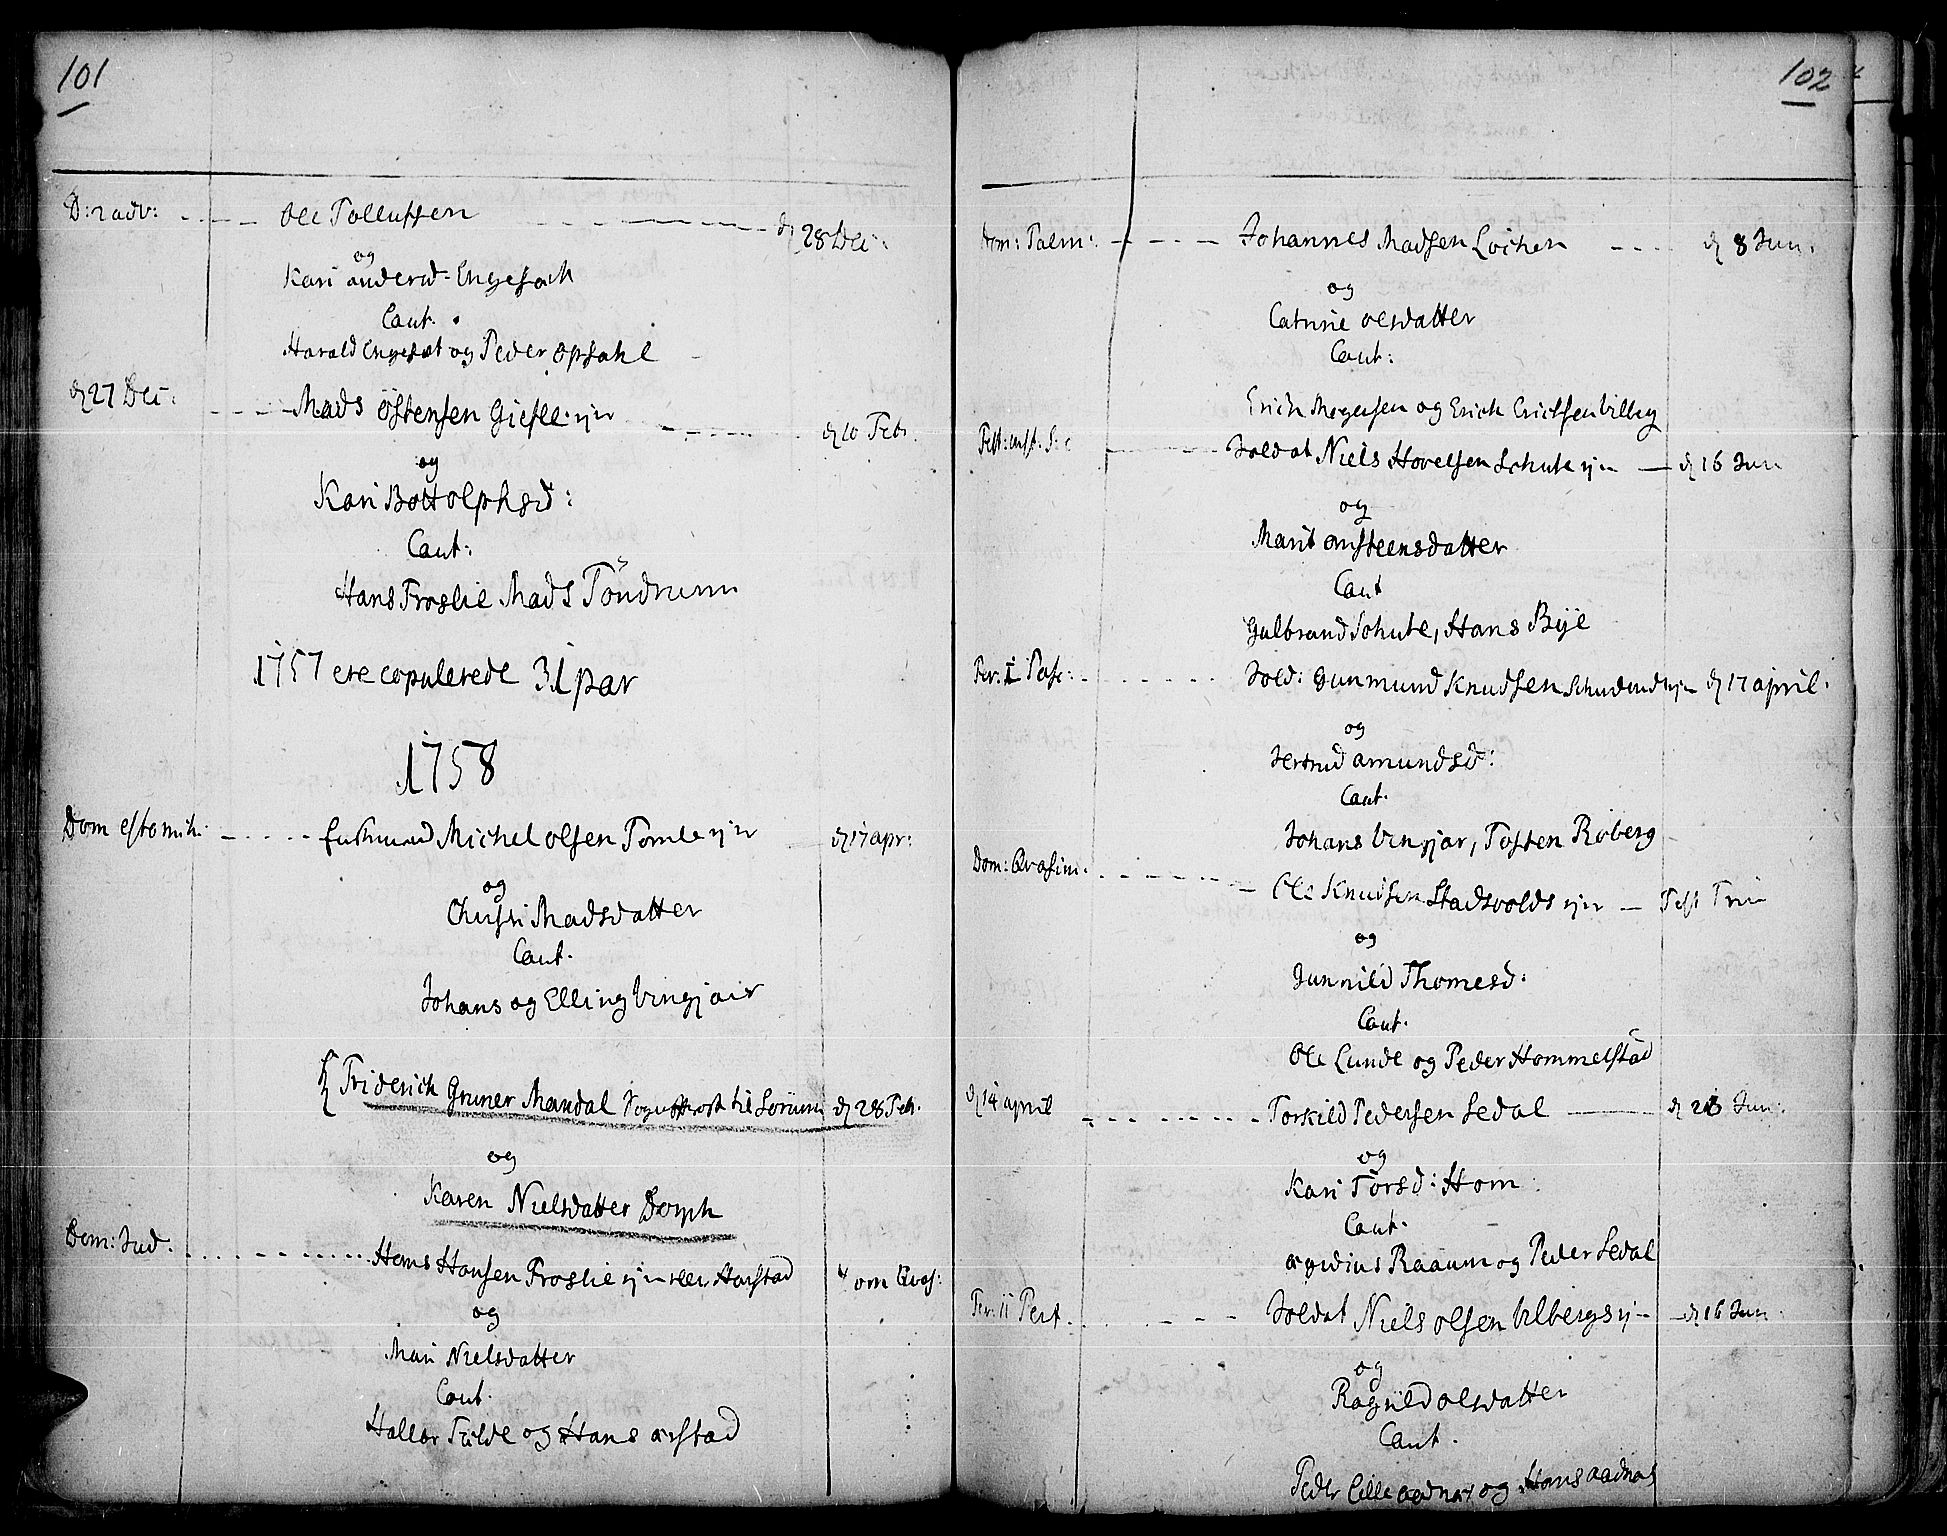 101
D: 2 adv: Ole Tollufsen d 28 Dec:
og
Kari anderd: Engesæth
Caut.
Harald Engesæt og Peder Opsahl
d 27 Dec: Mads Östensen Giefle ejer d 10 Febr.
og
Kari Bottolphsd:
Caut:
Hans Froslie Mads Töndrum
1757 ere copulerede 31 par
1758
Dom estomih: Michel olsen Tomle ejer d 17 apr:
og
Christi Madsdatter
Caut.
Johans og Elling Vingjær
Friderich Gruner Mandal til d 28 Feb.
og
Karen Nielsdatter Dorph
Dom: Jud. Hans Hansen Froslie ejer Harstad om Qvas:
og
Mari Nielsdatter
Caut.
Hallor Fulde og Hans arstad
102
Dom: Palm: Johannes Madsen Lochen d 8 Jun:
og
Catrine olsdatter
Caut:
Erich Mogensen og Erich Erichsen Vilberg
Fest: Soldat Niels Hovelsen Schute ejer d 16 Jun
og
Marit onsteensdatter
Caut
Gulbrand Schute, Hans Bye
Fer: I Pasc: Sold: Gunmund Knudsen d 17 april.
og
Jertrud amundsd:
Caut.
Johans Vingjar, Tosten Roberg
Dom: Qvasim. Ole Knudsen Stadsvolds ejer Fest Trin
og
Gunnild Thomesd:
Caut.
Ole Lunde og Peder Hommelstad
d 14 april Torkild Pedersen Sedal d 23 Jun:
og
Kari Torsd: Hom
Caut.
ægidius Raaum og Peder Sedal
Fer: II Pent. Soldat Niels olsen Ulbergs ej d 16 Jun:
og
Ragnild olsdatter
Caut.
Peder Lille aadnæs og Hans aadnæs